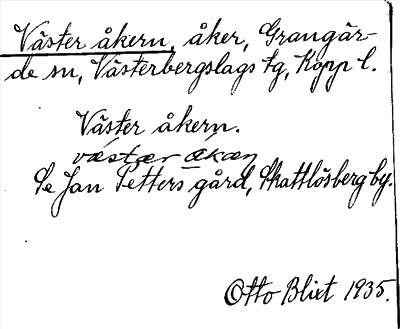 Väster åkern, åker, Grangär-
de sn, Västerbergslags tg, Kopp l.
Väster åkern.
væstær åkæn
Se Jan Petters gård, Skattlösberg by.
Otto Blixt 1935.